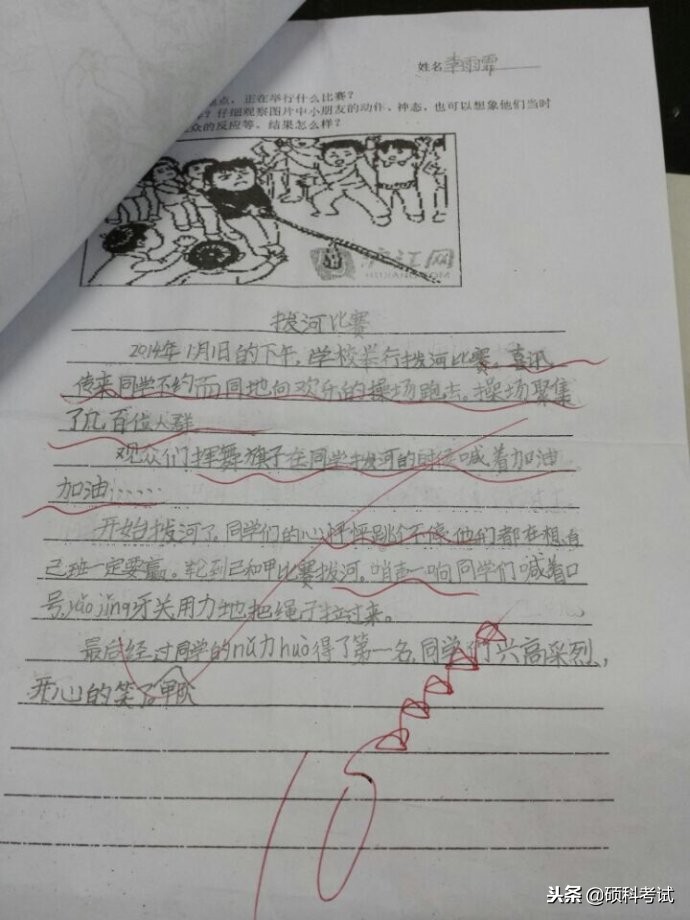 姓名李雨霏
点，正在举行什么比赛？
？仔细观察图片中小朋友的动作、神态，也可以想象他们当时
众的反应等，结果怎么样？
沪江网
HUJIANG.COM
拔河比赛
2014年1月1日的下午，学校举行拔河比赛。喜讯
传来同学不约而同地向欢乐的操场跑去。操场聚集
了几百位人群
观众们挥舞旗子在同学拔河的时候喊着加油
加油……
开始拔河了，同学们的心怦怦跳个不停，他们都在想自
己班一定要赢。轮到己和甲比赛拔河。哨声一响同学们喊着口
号，yǎo jǐng牙关用力地把绳子拉过来。
最后经过同学的nǔ力huò得了第一名，同学们兴高采烈，
开心的笑了甲队
头条 @硕科考试